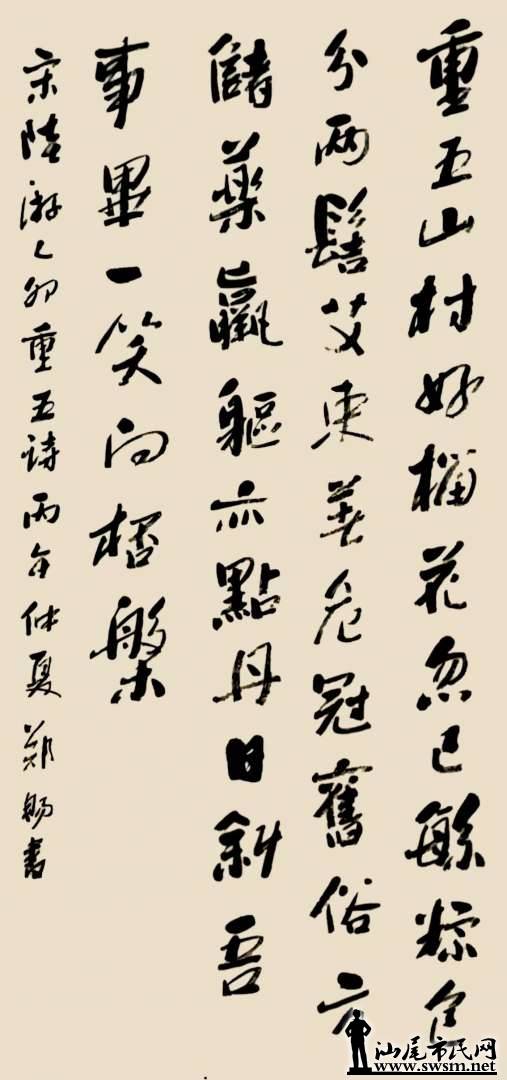 重五山村好榴花忽已繁粽包
分两髻艾束著危冠舊俗方
儲藥羸軀亦點丹日斜吾
事畢一笑向桮槃
宋陸游乙卯重五詩丙午仲夏鄭賜書
汕尾市民网
www.swsm.net